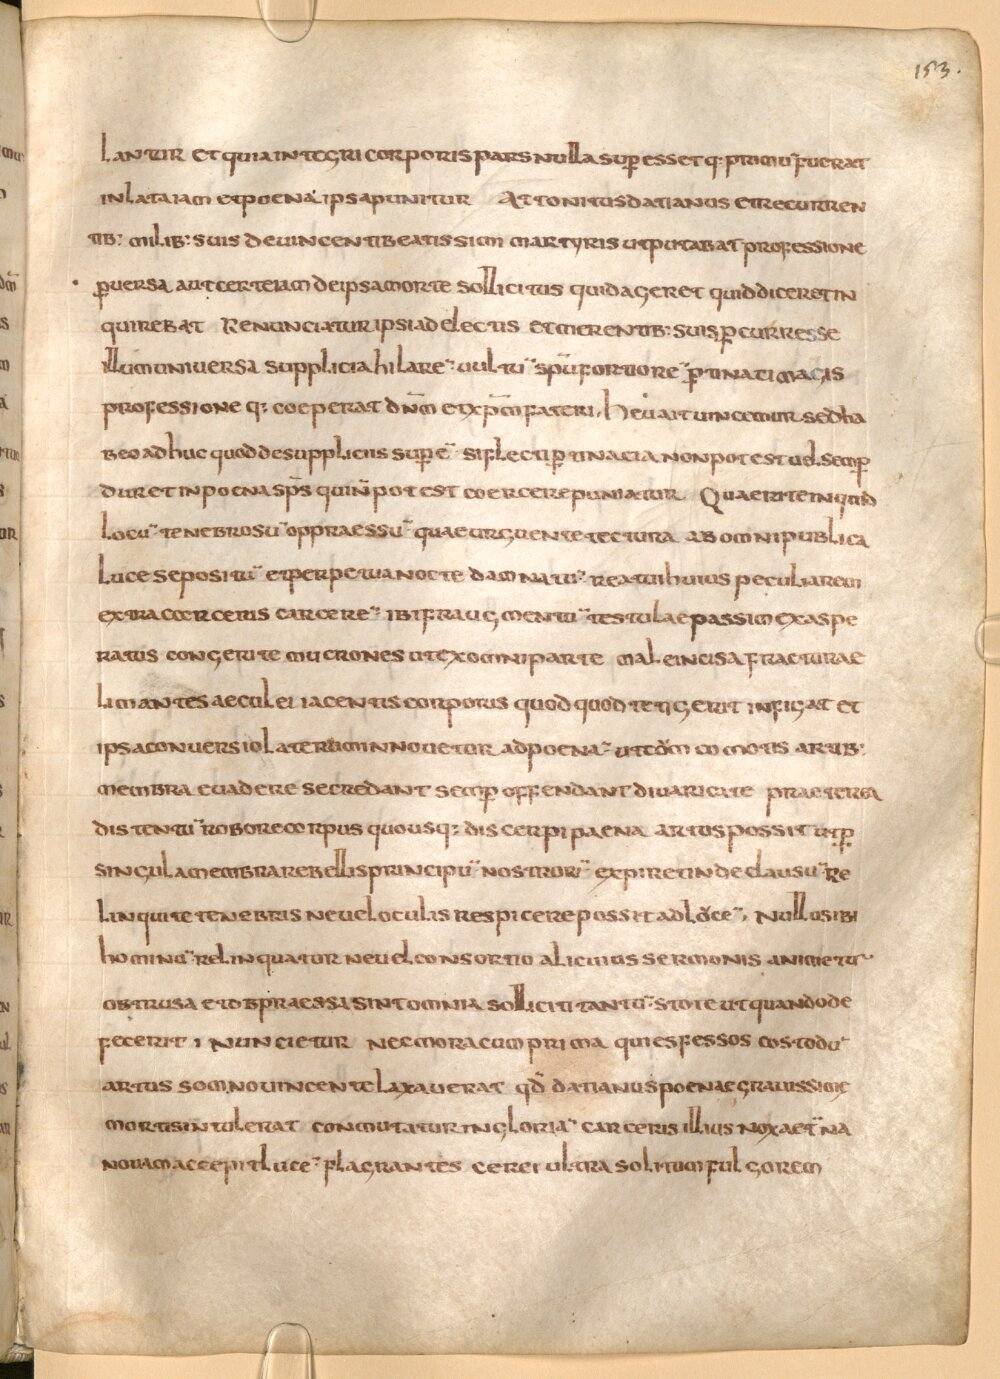 153.
lantur et quia integri corporis pars nulla sup̄esset q: primu᷑ fuerat
inlata iam et poena ipsa punitur Attonitus datianus et recurren
tib: milib: suis de uincenti beatissimi martyris ut putabat professione
p̄uersa aut certe iam de ipsa morte sollicitus quid ageret quid diceret in
quirebat Renunciatur ipsi ad electis et merentib: suis p̄curresse
illum uniuersa supplicia hilare᷑ uultu᷑ sp̄u fortiore᷑ p̄tinati magis
professione q: coeperat dn̄m et xp̄m fateri, Heu ait uincimur sed ha
beo adhuc quod de suppliciis sup̄ē si flecti p̄tinacia non potest uel semp̄
duret in poena sp̄s qui n̄ potest coercere puniatur Quaerite inquid
locu᷑ tenebrosu᷑ oppraessu᷑ quae urguente tectura ab omni publica
luce sepositu᷑ et perpetua nocte damnatu᷑ reatui huius peculiarem
extra coerceris carcere᷑ ibi fraugmentu᷑ testulae passim exaspe
ratus congerite mucrones ut ex omni parte male incisa fracturae
limantes aeculei iacentis corporis quod quod tetigerit infigat et
ipsa conuersio laterum innouetur ad poena᷑ ut cōm comotis artib:
membra euadere se credant semp̄ offendant diuaricate praeterea
distentu᷑ robore corpus quousq: discerpi paena artus possit ut p̄
singula membra rebellis principu᷑ nostroru᷑ expiret inde clausu᷑ re
linquite tenebris neue loculis respicere possit ad luce᷑, Nullus ibi
hominu᷑ relinquatur neue consortio alicuius sermonis animetu᷑
obtrusa et obpraessa sint omnia solliciti tantu᷑ stote ut quando de
fecerit inuncietur nec mora cum prima quies fessos custodu᷑
artus somno uincente laxauerat qd̄ datianus poenae grauissime
mortis intulerat conmutatur in gloria᷑ carceris illius nox aet̄na
nouam accepit luce᷑ flagrantes cerei ultra solitum fulgorem